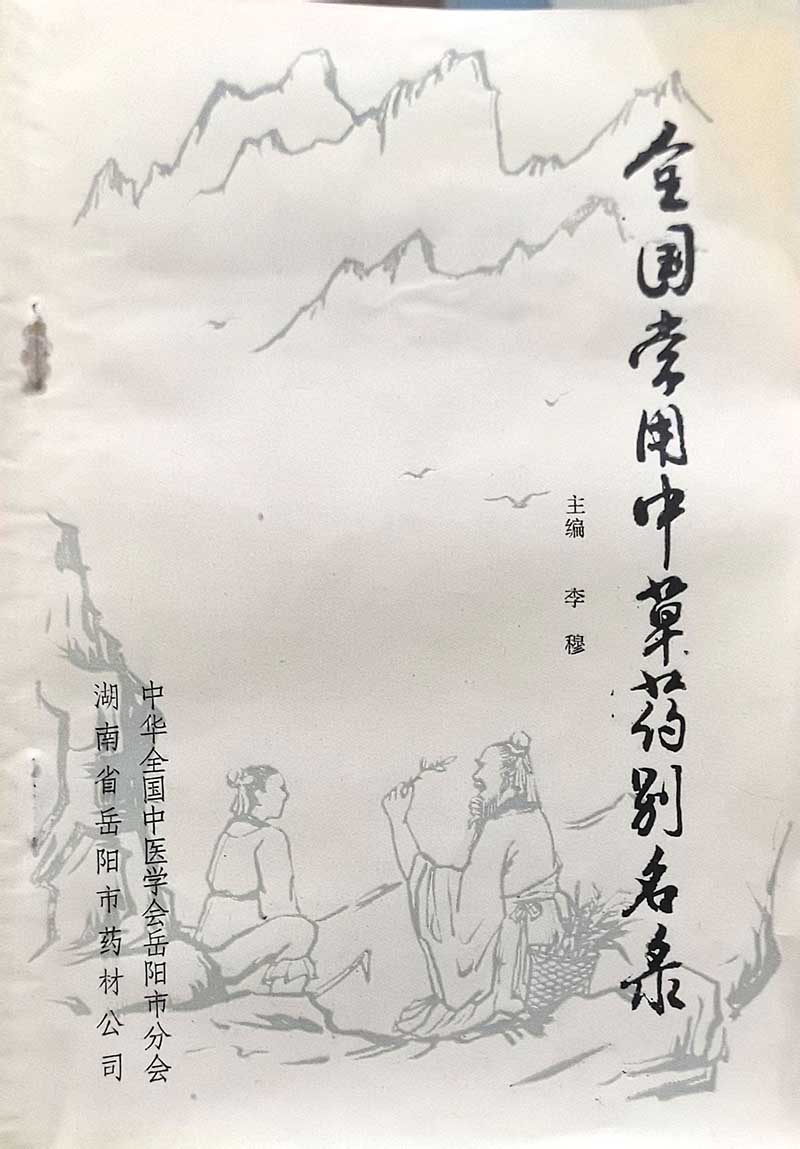 全国常用中草药别名录
主编 李穆
中华全国中医学会岳阳市分会
湖南省岳阳市药材公司